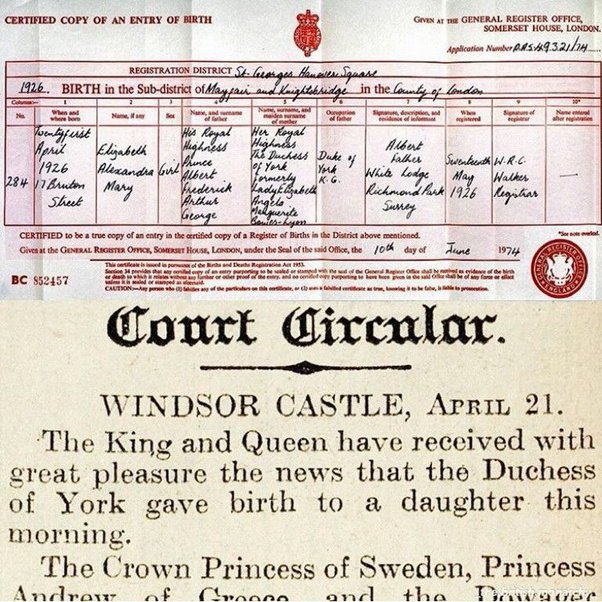 CERTIFIED COPY OF AN ENTRY OF BIRTH
GIVEN AT THE GENERAL REGISTER OFFICE,
SOMERSET HOUSE, LONDON.
Application Number P.A.S. 49321/74
REGISTRATION DISTRICT St. Georges Hanover Square
1926. BIRTH in the Sub-district of Mayfair and Knightsbridge in the County of London
Columns:— 1 2 3 4 5 6 7 8 9 10*
No. When and where born Name, if any Sex Name, and surname of father Name, surname, and maiden surname of mother Occupation of father Signature, description, and residence of informant When registered Signature of registrar Name entered after registration
284 Twentyfirst April 1926 17 Bruton Street Elizabeth Alexandra Mary Girl His Royal Highness Prince Albert Frederick Arthur George Her Royal Highness The Duchess of York formerly Lady Elizabeth Angela Marguerite Bowes-Lyon Duke of York K.G. Albert Father White Lodge Richmond Park Surrey Seventeenth May 1926 W.R.C. Walker Registrar —
CERTIFIED to be a true copy of an entry in the certified copy of a Register of Births in the District above mentioned.
*See note overleaf.
Given at the GENERAL REGISTER OFFICE, SOMERSET HOUSE, LONDON, under the Seal of the said Office, the 10th day of June 1974
BC 852457
This certificate is issued in pursuance of the Births and Deaths Registration Act 1953.
Section 34 provides that any certified copy of an entry purporting to be sealed or stamped with the seal of the General Register Office shall be received as evidence of the birth
or death to which it relates without any further or other proof of the entry, and no certified copy purporting to have been given in the said Office shall be of any force or effect
unless it is sealed or stamped as aforesaid.
CAUTION:—Any person who (1) falsifies any of the particulars on this certificate, or (2) uses a falsified certificate as true, knowing it to be false, is liable to prosecution.
GENERAL REGISTER OFFICE ENGLAND
Court Circular.
WINDSOR CASTLE, APRIL 21.
The King and Queen have received with
great pleasure the news that the Duchess
of York gave birth to a daughter this
morning.
The Crown Princess of Sweden, Princess
Andrew of Greece and the Dowager